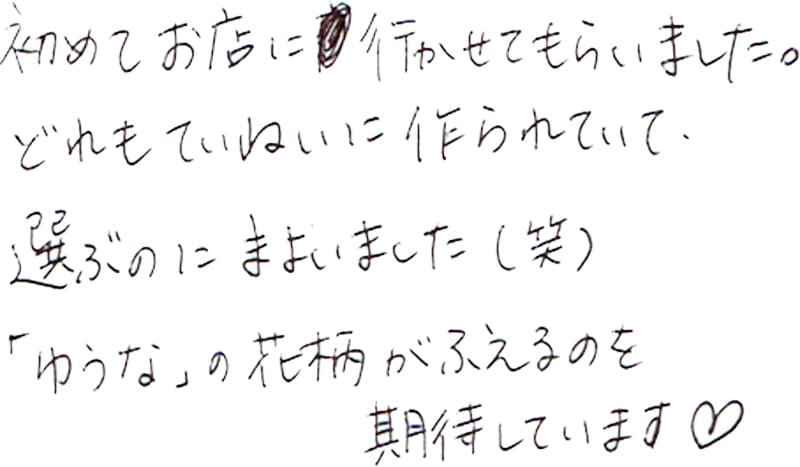 初めてお店に行かせてもらいました。
どれもていねいに作られていて、
選ぶのにまよいました（笑）
「ゆうな」の花柄がふえるのを
期待しています♡